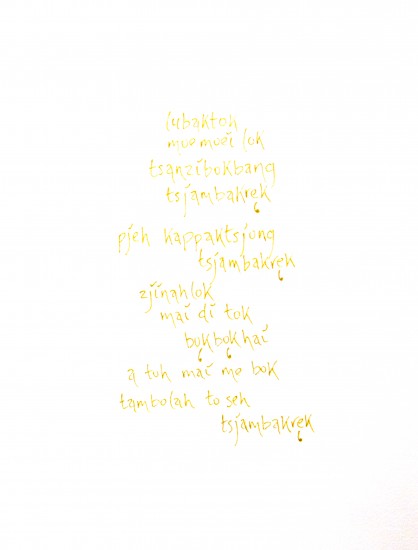 lubaktoh
muemuei lok
tsanzibokbang
tsjambakrek
pjeh kappaktsjung
tsjambakrek
zjinahlok
mai di tok
bokbokhai
a toh mai me bok
tambolah to seh
tsjambakrek